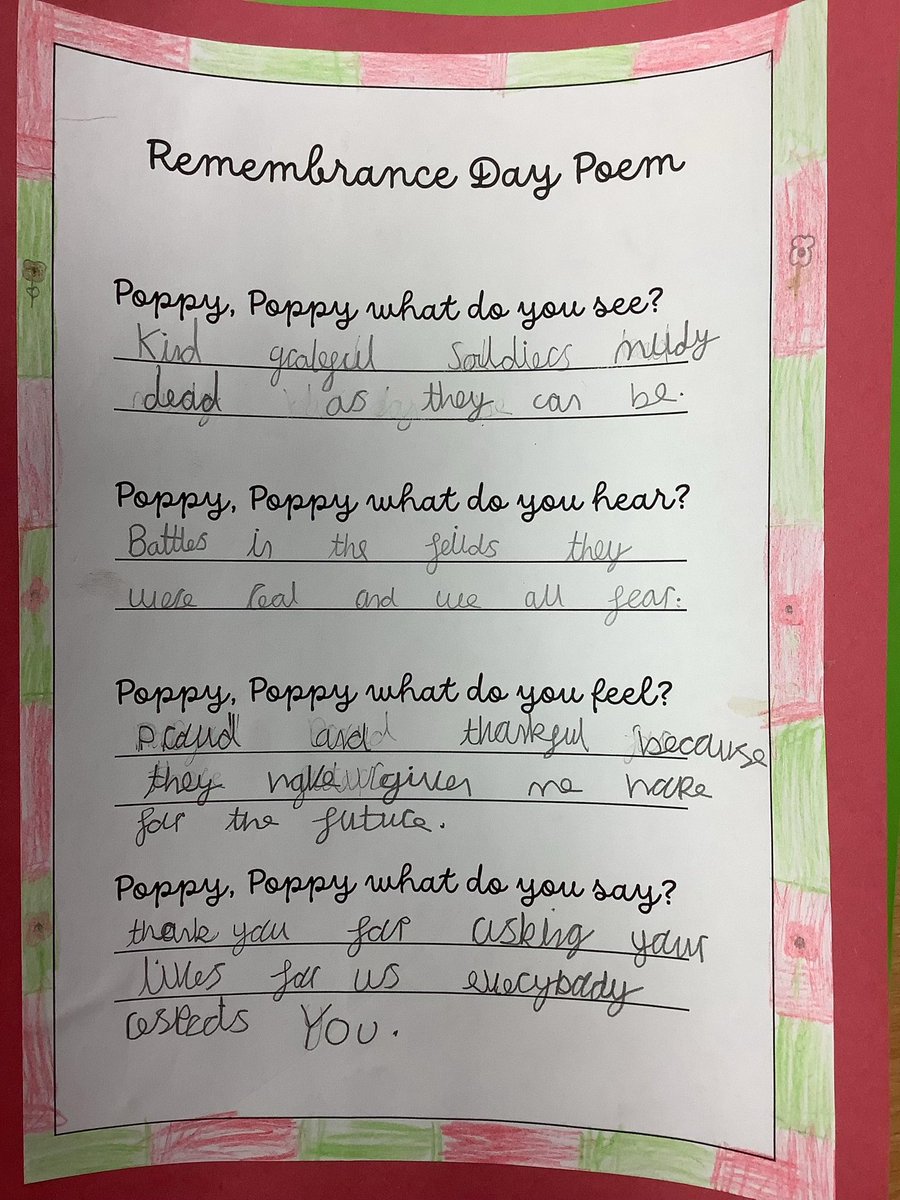 Remembrance Day Poem
Poppy, Poppy what do you see?
Kind grateful Souldiers muddy
dead as they can be.
Poppy, Poppy what do you hear?
Battles in the feilds they
were real and we all fear.
Poppy, Poppy what do you feel?
proud and thankful because
they given me
for the future.
Poppy, Poppy what do you say?
thank you for risking your
lives for us everybody
respects You.